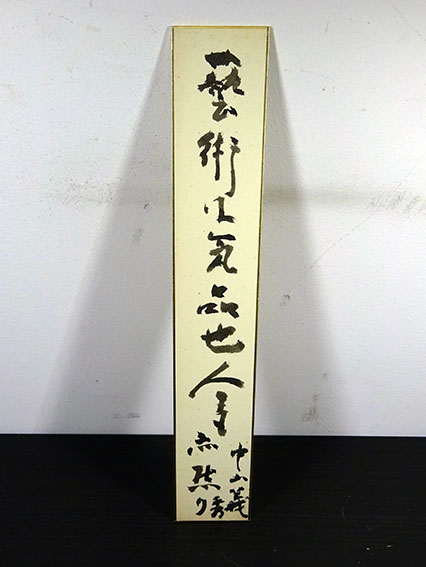 藝術は気品也人生
亦然り
中山義秀